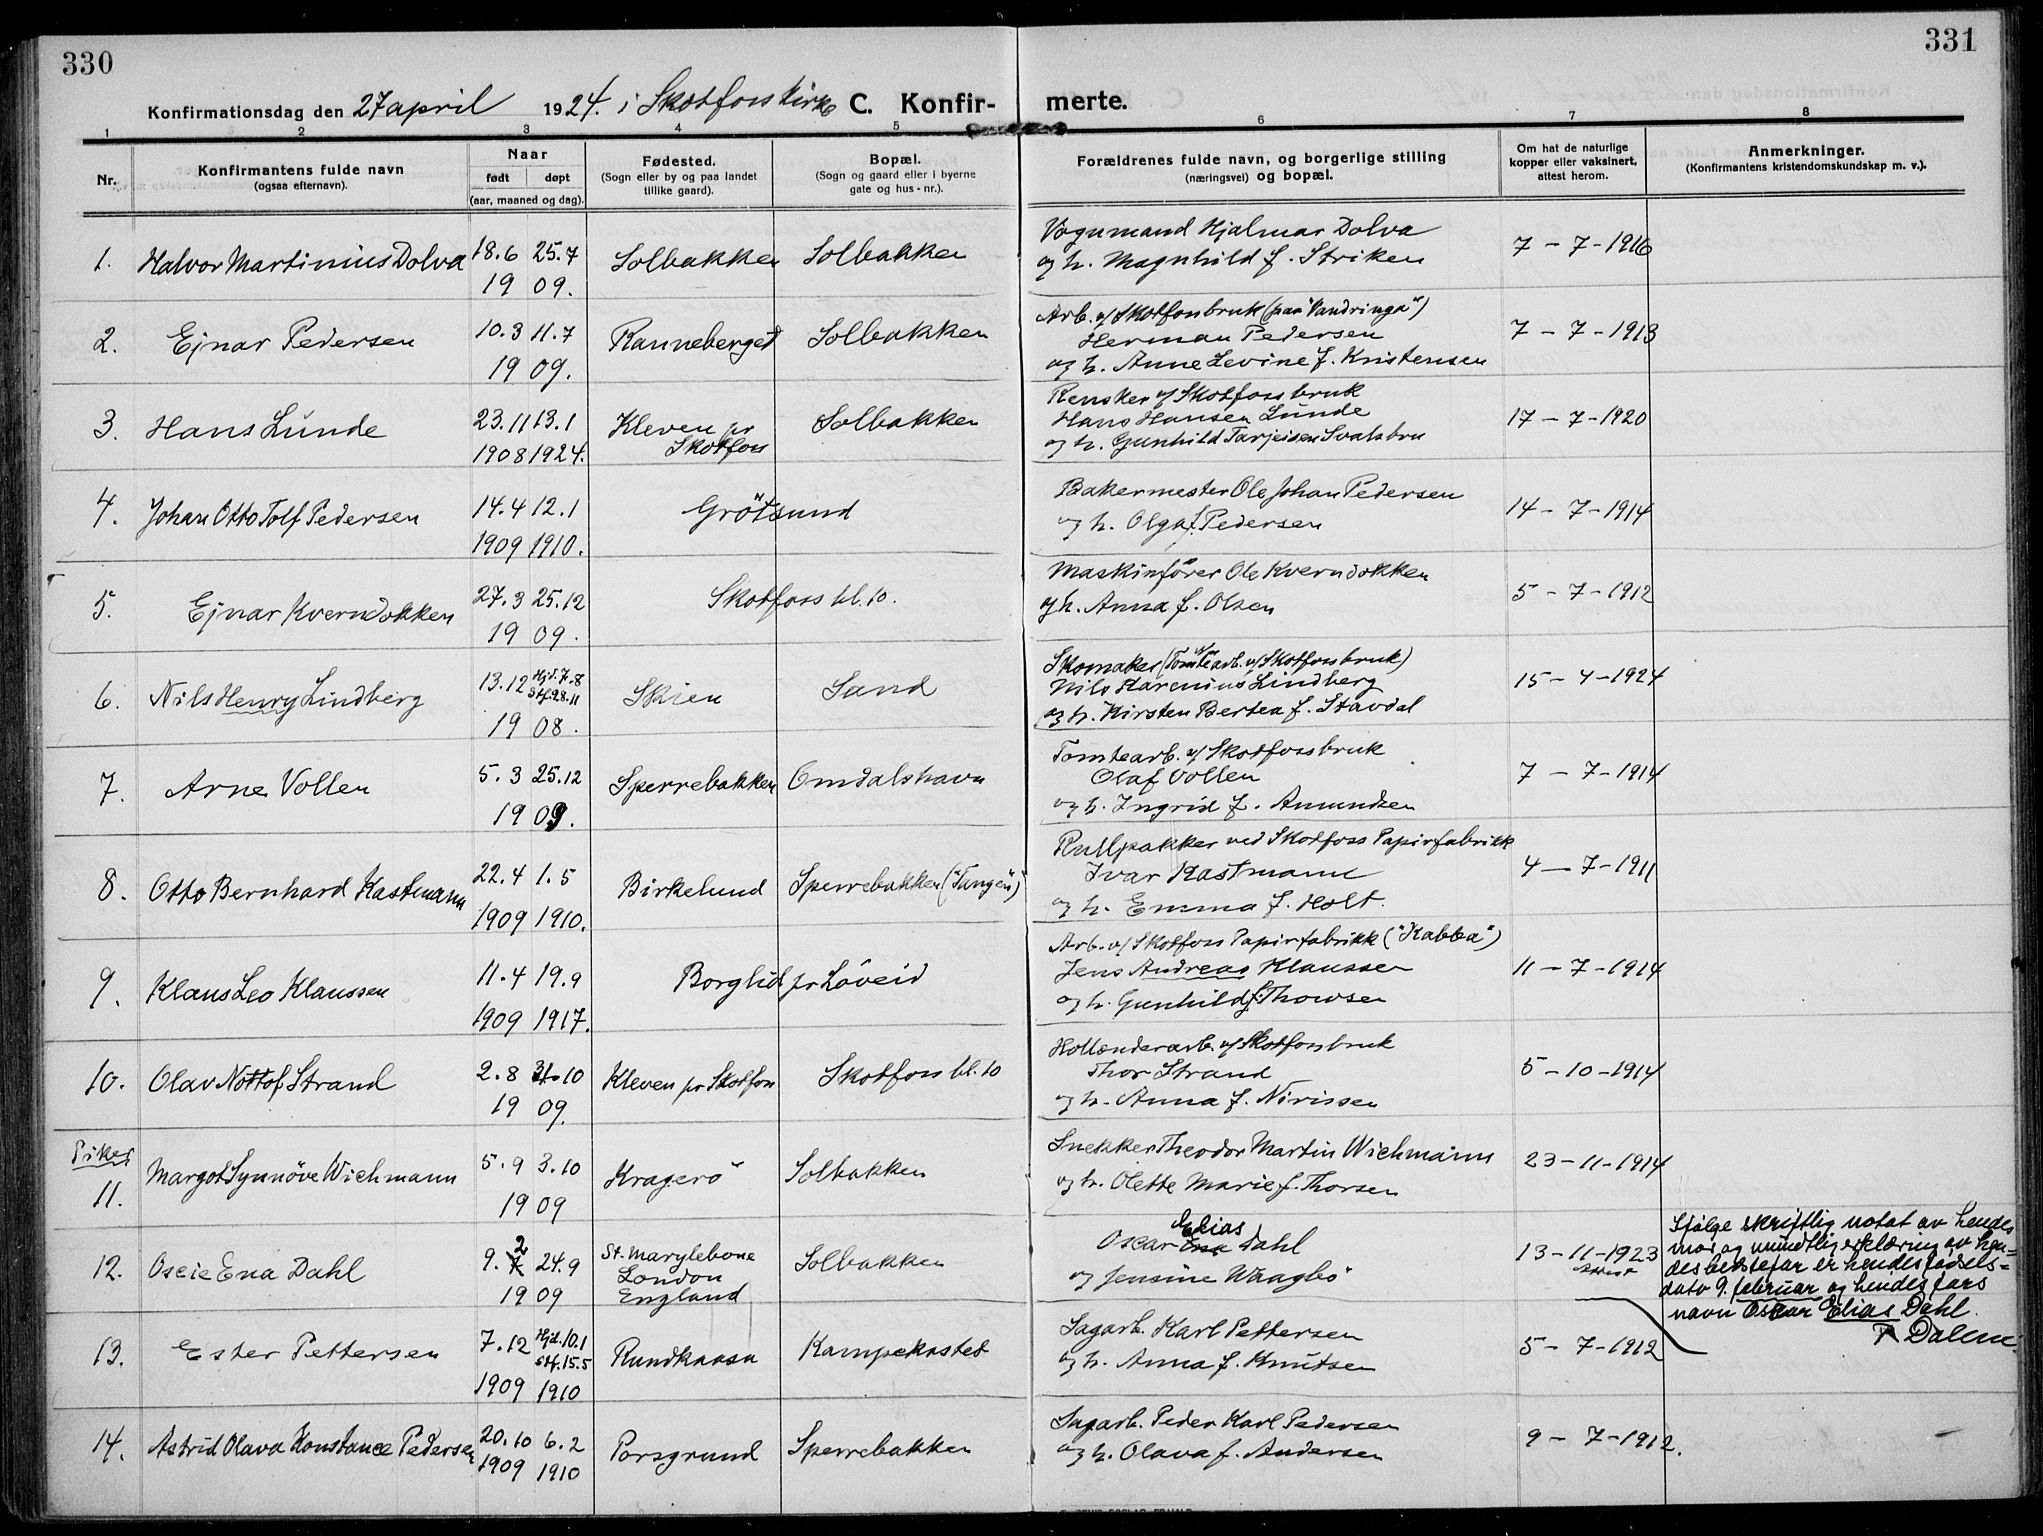 330
331
Konfirmationsdag den 27 april 1924. i Skotfoss kirke C. Konfir- merte.
1 2 3 4 5 6 7 8
Nr.
Konfirmantens fulde navn
(ogsaa efternavn).
Naar
født døpt
(aar, maaned og dag).
Fødested.
(Sogn eller by og paa landet
tillike gaard).
Bopæl.
(Sogn og gaard eller i byerne
gate og hus-nr.).
Forældrenes fulde navn, og borgerlige stilling
(næringsvei) og bopæl.
Om hat de naturlige
kopper eller vaksinert,
attest herom.
Anmerkninger.
(Konfirmantens kristendomskundskap m. v.).
1. Halvor Martinius Dolva 18.6 25.7 Solbakken Solbakken
19 09.
Vognmand Hjalmar Dolva
og h. Magnhild f. Striken
7 - 7 - 1916
2. Ejnar Pedersen 10.3 11.7 Ranneberget Solbakken
19 09.
Arb. v/ Skotfossbruk (paa "Vandringa")
Herman Pedersen
og h. Anne Levine f. Kristensen
7 - 7 - 1913
3. Hans Lunde 23.11 13.1 Kleven pr Solbakken
Skotfoss
1908 1924.
Rensker v/ Skotfoss bruk
Hans Hansen Lunde
og h. Gunhild Tarjeisen Svalsbru
17 - 7 - 1920
4. Johan Otto Tolf Pedersen 14.4 12.1 Grötsund
1909 1910.
Bakermester Ole Johan Pedersen
og h. Olga f. Pedersen
14 - 7 - 1914
5. Ejnar Kverndokken 27.3 25.12 Skotfoss bl. 10.
19 09.
Maskinförer Ole Kverndokken
og h. Anna f. Olsen
5 - 7 - 1912
6. Nils Henry Lindberg 13.12 Hjd. 7.8 Skien Sand
Stf. 28.11
19 08.
Skomaker (Tomtearb. v/ Skotfossbruk)
Nils Karenius Lindberg
og h. Kirsten Bertea f. Stavdal
15 - 4 - 1924
7. Arne Vollen 5.3 25.12 Sperrebakken Omdalshavn
19 09.
Tomtearb. v/ Skotfossbruk
Olaf Vollen
og h. Ingrid f. Amundsen
7 - 7 - 1914
8. Otto Bernhard Kastmann 22.4 1.5 Birkelund Sperrebakken ("Tangen")
1909 1910.
Rullpakker ved Skotfoss Papirfabrikk
Ivar Kastmann
og h. Emma f. Holt.
4 - 7 - 1911
9. Klaus Leo Klaussen 11.4 19.9 Borglid pr Löveid
1909 1917.
Arb. v/ Skotfoss Papirfabrikk ("Kabba")
Jens Andreas Klaussen
og h. Gunhild f. Thowsen
11 - 7 - 1914
10. Olav Nottof Strand 2.8 31.10 Kleven pr Skotfoss Skotfoss bl. 10
19 09.
Hollænderarb. v/ Skotfossbruk
Thor Strand
og h. Anna f. Nirissen
5 - 10 - 1914
Piker
11. Margot Synnöve Wichmann 5.9 3.10 Kragerö Solbakken
19 09
Snekker Theodor Martin Wichmann
og h. Olette Marie f. Thorsen
23 - 11 - 1914
12. Oscie Ena Dahl 9.2 24.9 St. Marylebone Solbakken
London
19 09 England
Elias
Oscar Ena Dahl
og Jensine Waagbö
13 - 11 - 1923
Attest
Ifölge skriftlig notat av hendes
mor og mundtlig erklæring av hen-
des bestefar er hendes födsels-
dato 9. februar og hendes fars
navn Oscar Elias Dahl.
Dalene
13. Ester Pettersen 7.12 Hjd. 10.1 Rundkaasa Kampekastet
Stf. 15.5
1909 1910
Sagarb. Karl Pettersen
og h. Anna f. Knutsen
5 - 7 - 1912
14. Astrid Olava Konstance Pedersen 20.10 6.2 Porsgrund Sperrebakken
1909 1910
Sagarb. Peder Karl Pedersen
og h. Olava f. Andersen
9 - 7 - 1912.